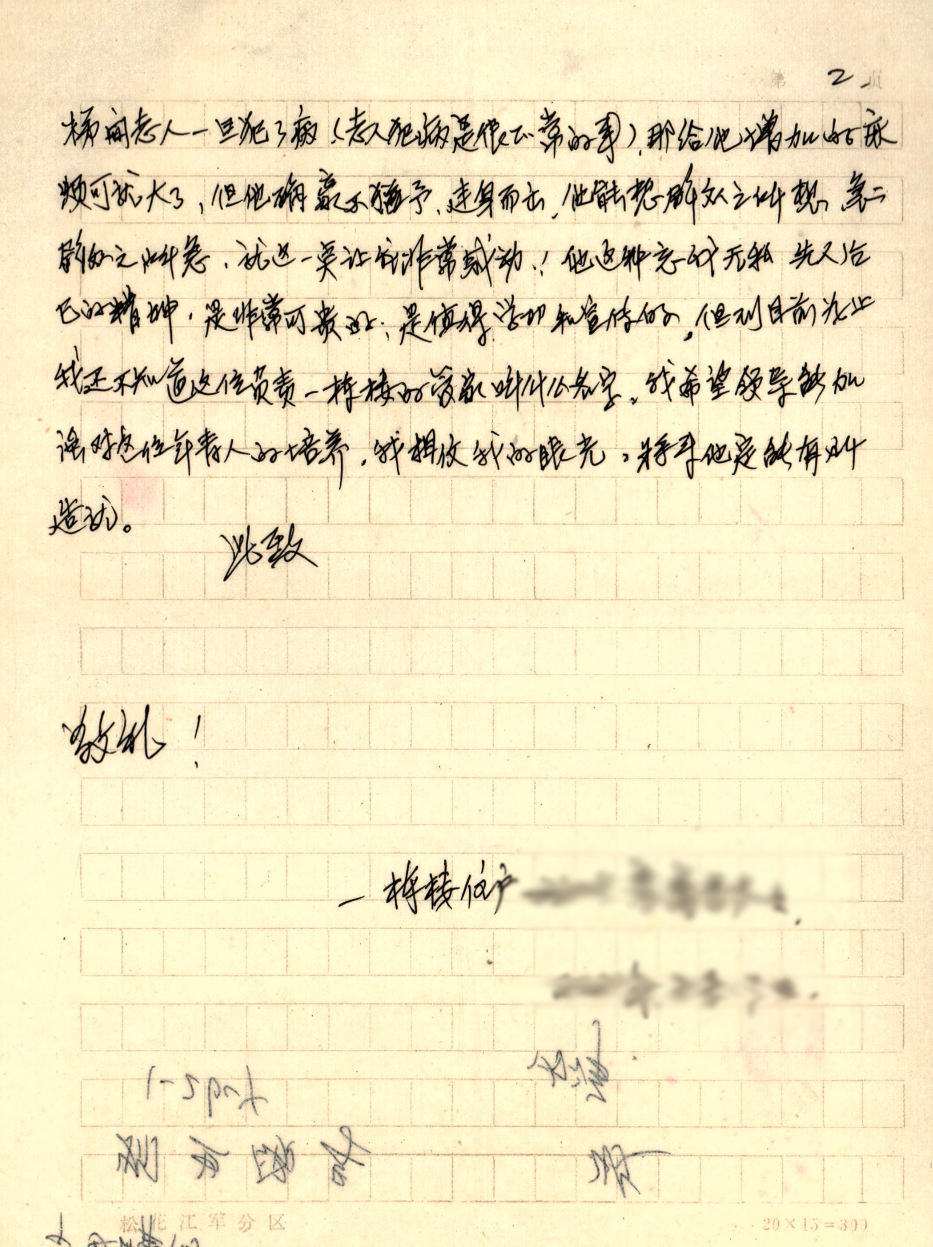 第 2 页
楼间老人一旦犯了病（老人犯病是很正常的事），那给他增加的麻
烦可就大了，但他确毫不犹予，挺身而出，他能想群众之所想，急
群众之所急，就这一点让我非常感动！他这种忘我无私先人后
己的精神，是非常可贵的；是值得学习和宣传的，但到目前为止
我还不知道这位负责一栋楼的管家叫什么名字。我希望领导能加
强对这位年青人的培养，我相信我的眼光，将来他定能有所
造就。
此致
敬礼！
一栋楼住户
松花江军分区
20×15=300